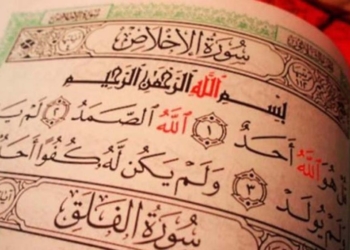 سُورَةُ الإِخْلَاصِ
بِسْمِ اللَّهِ الرَّحْمَٰنِ الرَّحِيمِ
هُوَ اللَّهُ أَحَدٌ ١ اللَّهُ الصَّمَدُ ٢ لَمْ
يُولَدْ ٣ وَلَمْ يَكُن لَّهُ كُفُوًا أَحَدٌ
سُورَةُ الفَلَقِ